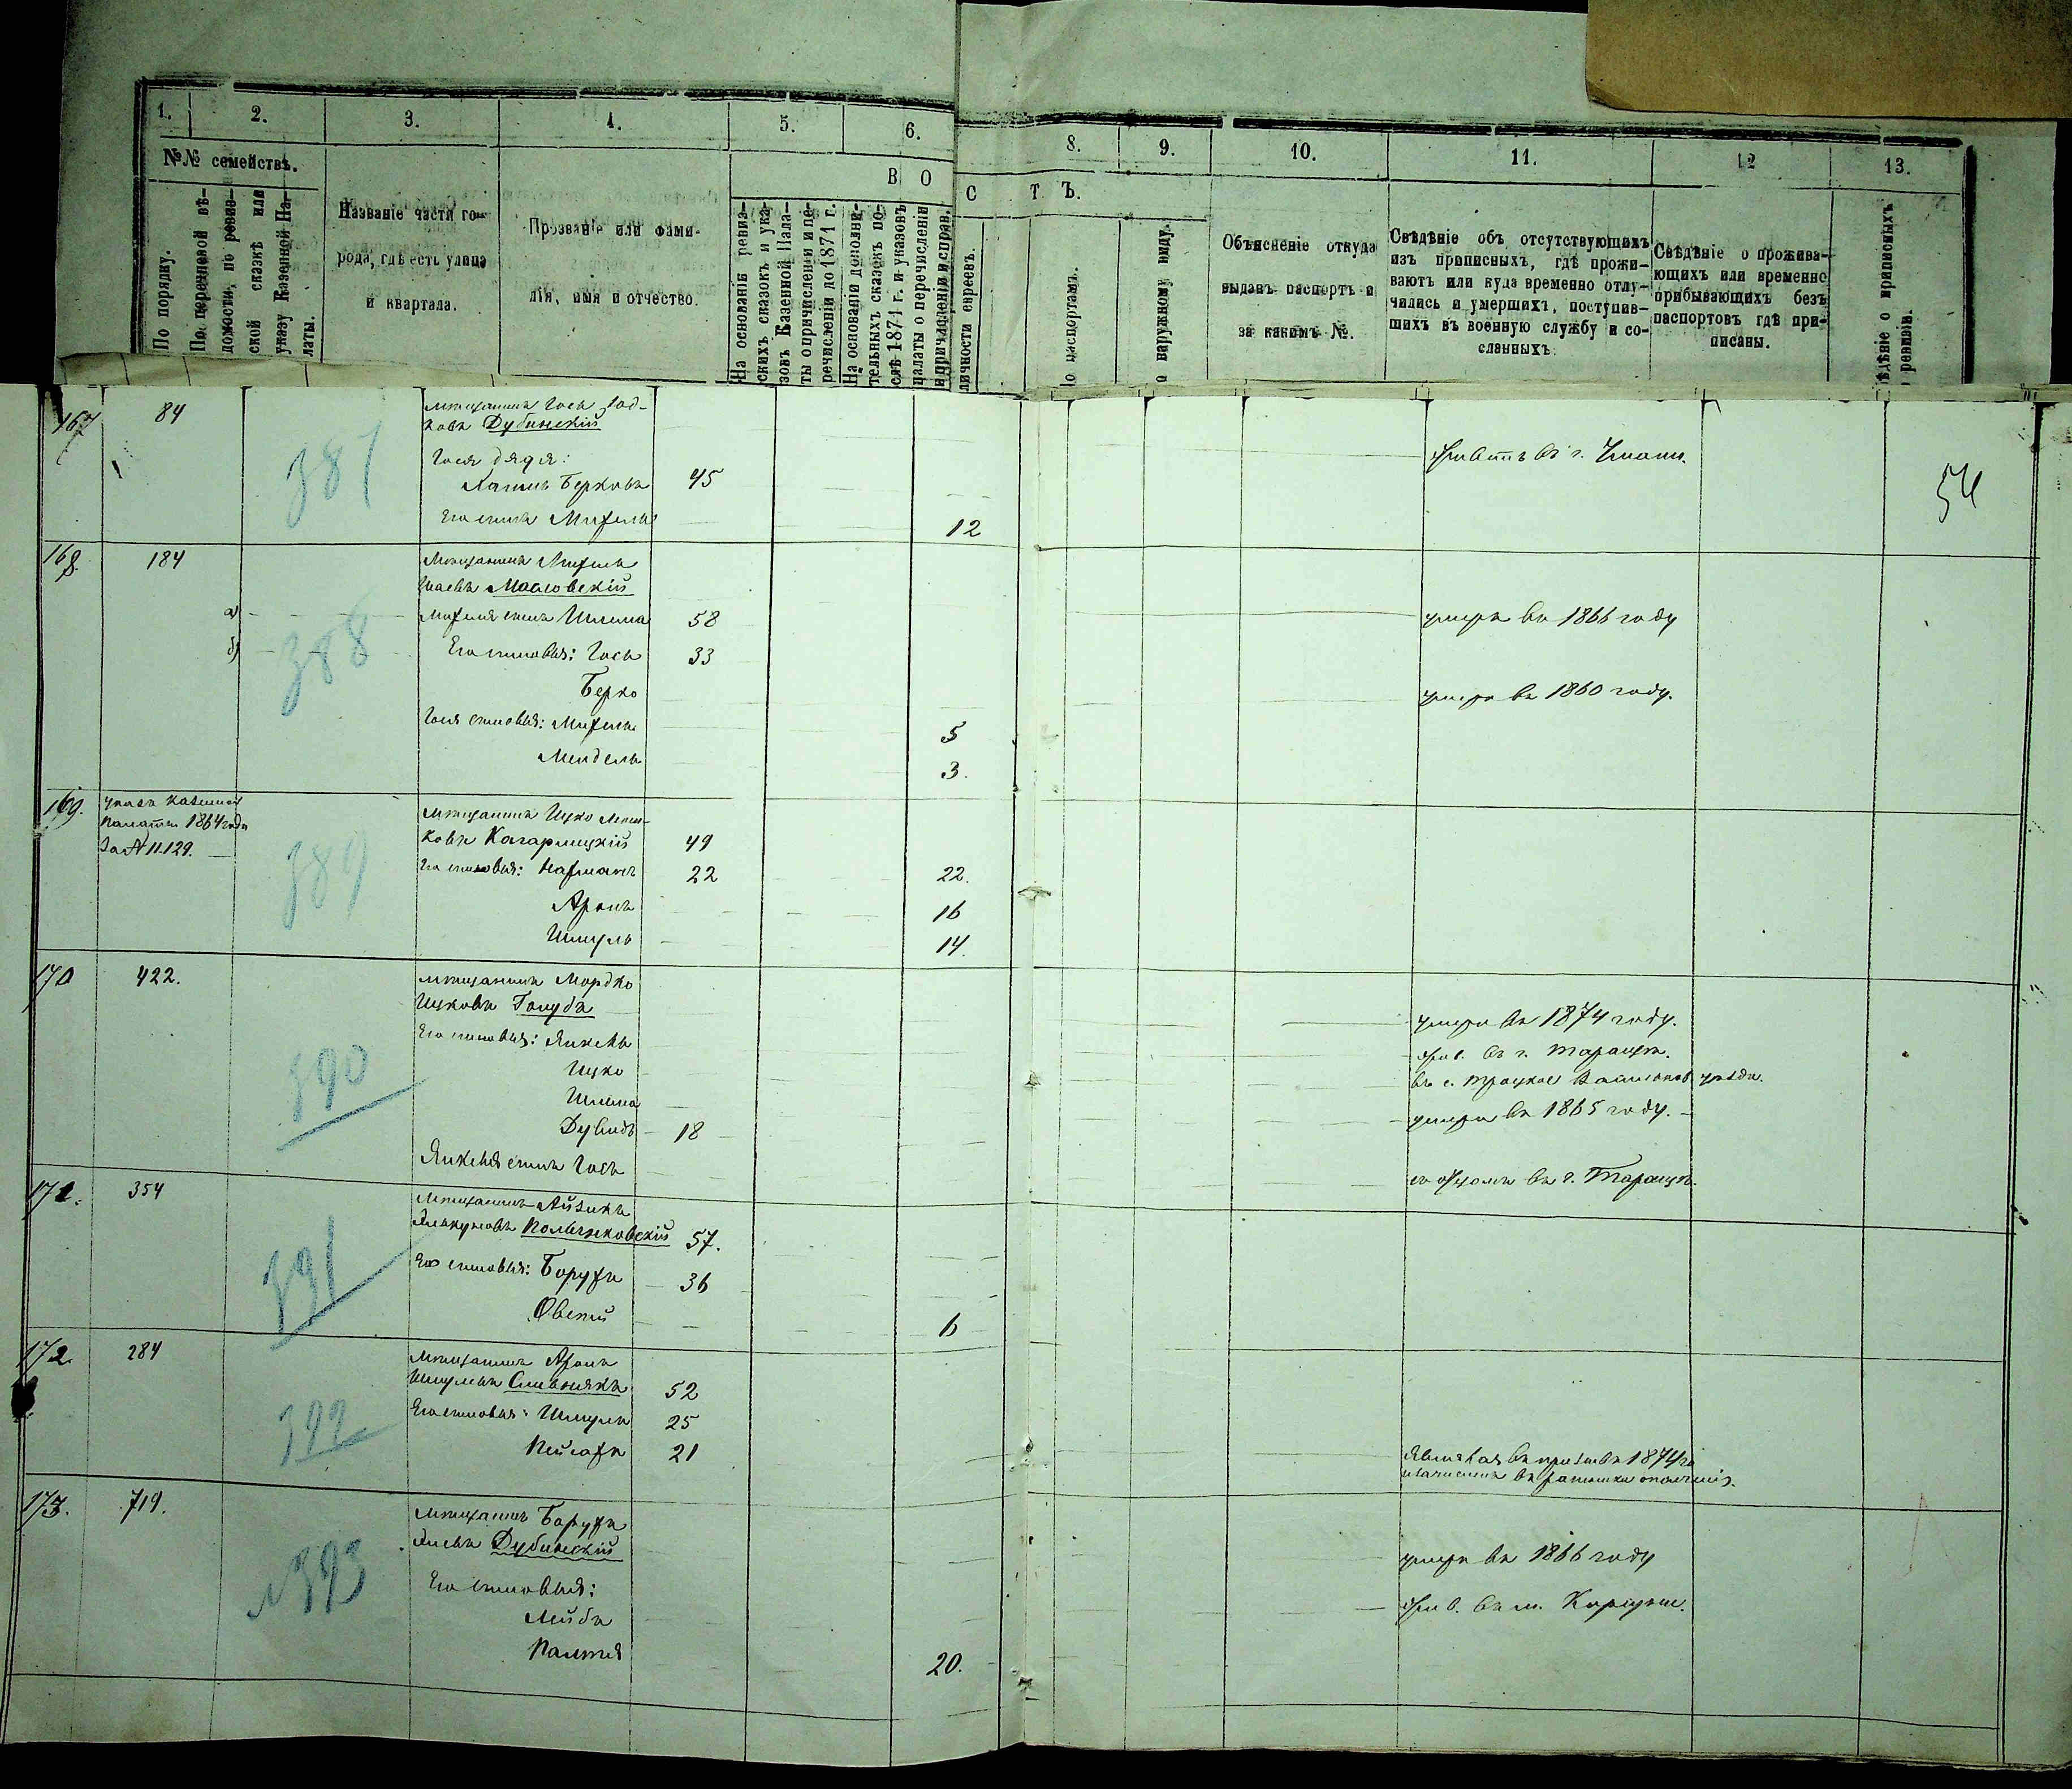 1. 2. 3. 4. 5. 6. 8. 9. 10. 11. 12 13.
№№ семействъ.
В О С Т Ъ.
По порядку.
По перечневой вѣ-
домости, по ревиз-
ской сказкѣ или
указу Казенной Па-
латы.
Названіе части го-
рода, гдѣ есть улица
и квартала.
Прозваніе или фами-
лія, имя и отчество.
На основаніи ревиз-
скихъ сказокъ и ука-
зовъ Казенной Пала-
ты о причисленіи и пе-
речисленіи до 1871 г.
На основаніи дополни-
тельныхъ сказокъ по-
слѣ 1871 г. и указовъ
палаты о перечисленіи
и причисленіи и справ.
личности евреевъ.
о паспортамъ.
о наружному виду.
Объясненіе откуда
выданъ паспортъ и
за какимъ №.
Свѣдѣніе объ отсутствующихъ
изъ приписныхъ, гдѣ прожи-
ваютъ или куда временно отлу-
чились и умершихъ, поступив-
шихъ въ военную службу и со-
сланныхъ.
Свѣдѣніе о прожива-
ющихъ или временно
прибывающихъ безъ
паспортовъ гдѣ при-
писаны.
ѣдѣніе о приписныхъ
ревизіи.
54
167 84 387
мѣщанинъ Гось
ковъ Дубинскій
Гося дядя:
Берковъ 45
Его сынъ Михель 12
живетъ въ г. Умани.
168 184 388
Мѣщанинъ Михель
Масловскій
а) Михеля сынъ Шлема 58 умеръ въ 1866 году
б) Его сыновья: Гось 33
Берко умеръ въ 1860 году.
Гося сыновья: Михель 5
Мендель 3.
169. указъ казенной
палаты 1864 года
за № 11.129.
389
мѣщанинъ Ицко
ковъ Кагарлицкій 49
Его сыновья: Нахманъ 22 22.
Аронъ 16
Шмуль 14.
170 422. 390
мѣщанинъ Мордко
Ицковъ Голубъ умеръ въ 1874 году.
Его сыновья: Янкель жив. въ г. Таращѣ.
Ицко въ с. Троцкое уѣзда.
Шлема умеръ въ 1865 году.
Дувидъ 18
Янкеля сынъ Гось съ отцомъ въ г. Таращѣ.
171. 354 391
Мѣщанинъ Айзикъ
57.
Его сыновья: Борухъ 36
Овсей 6
172. 284 392
Мѣщанинъ Аронъ
Шмулевъ Сливнякъ 52
Его сыновья: Шмуль 25
Пейсахъ 21
въ 1874 г.
въ ратники ополченія.
173. 719. №393
мѣщанинъ Борухъ
Дубинскій умеръ въ 1866 году
Его сыновья:
Лейба жив. въ м. Корсунѣ.
20.